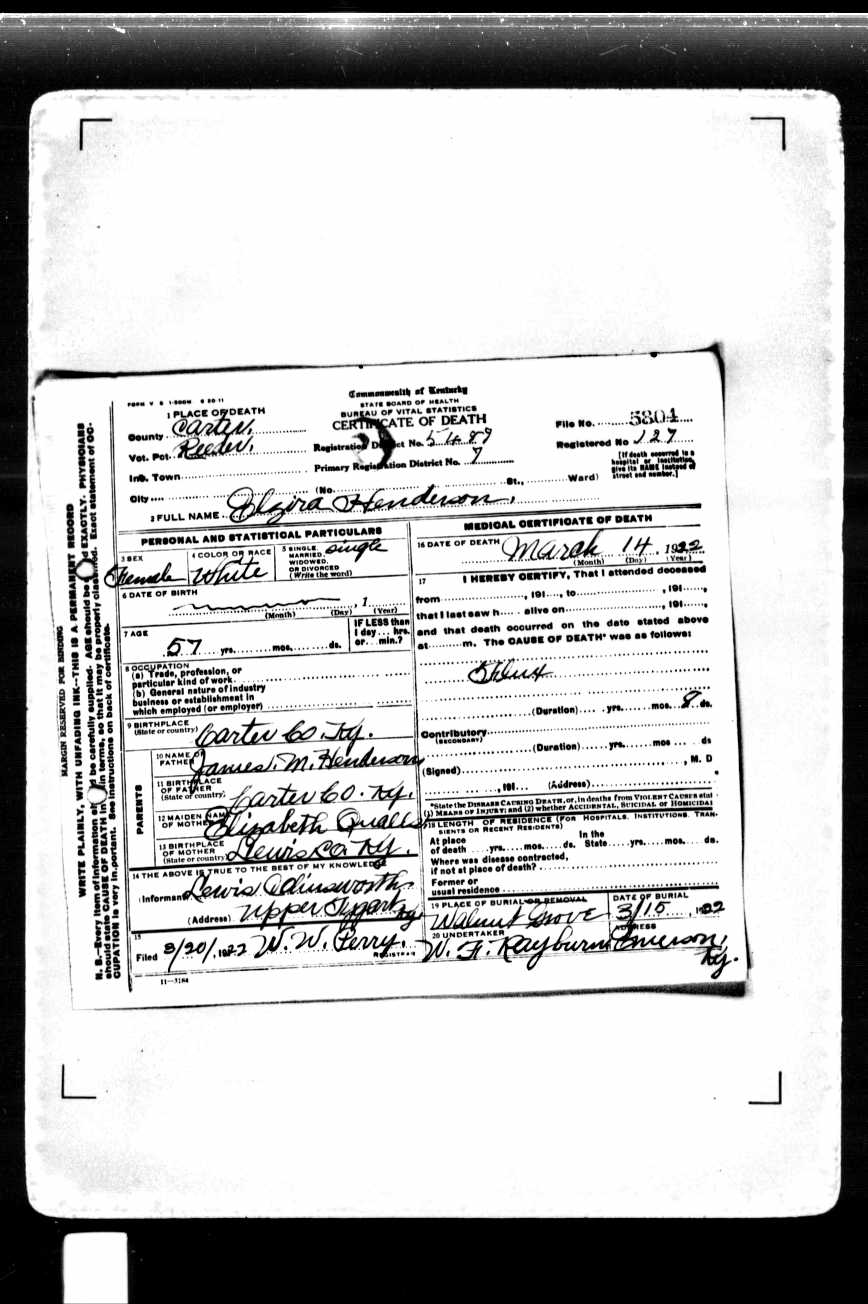 FORM V S 1-500M 6 20 11
Commonwealth of Kentucky
STATE BOARD OF HEALTH
BUREAU OF VITAL STATISTICS
CERTIFICATE OF DEATH
1 PLACE OF DEATH
County Carter,
Vot. Pct. Reeder,
Inc. Town
City
Registration District No. 5489
Primary Registration District No. 7
(No. St., Ward)
File No. 5804
Registered No 127
[If death occurred in a
hospital or institution,
give its NAME instead of
street and number.]
2 FULL NAME Elzira Henderson,
PERSONAL AND STATISTICAL PARTICULARS
3 SEX
Female
4 COLOR OR RACE
White
5 SINGLE, single
MARRIED,
WIDOWED,
OR DIVORCED
(Write the word)
6 DATE OF BIRTH
, 1
(Month) (Day) (Year)
7 AGE
57 yrs. mos. ds.
IF LESS than
1 day ... hrs.
or ... min.?
8 OCCUPATION
(a) Trade, profession, or
particular kind of work
(b) General nature of industry
business or establishment in
which employed (or employer)
9 BIRTHPLACE
(State or country) Carter Co. Ky.
PARENTS
10 NAME OF
FATHER James. M. Henderson
11 BIRTHPLACE
OF FATHER
(State or country) Carter Co. Ky.
12 MAIDEN NAME
OF MOTHER Elizabeth Qualls
13 BIRTHPLACE
OF MOTHER
(State or country) Lewis Co. Ky.
14 THE ABOVE IS TRUE TO THE BEST OF MY KNOWLEDGE
(Informant) Lewis
(Address) Upper Tygart Ky
15
Filed 3/20/, 1922 W. W. Perry.
REGISTRAR
11—3184
MEDICAL CERTIFICATE OF DEATH
16 DATE OF DEATH March 14, 1922
(Month) (Day) (Year)
17 I HEREBY CERTIFY, That I attended deceased
from , 191 , to , 191 ,
that I last saw h alive on , 191 ,
and that death occurred on the date stated above
at m. The CAUSE OF DEATH* was as follows:
(Duration) yrs. mos. 8 ds.
Contributory
(SECONDARY)
(Duration) yrs. mos ds
(Signed) , M. D
, 191 (Address)
*State the DISEASE CAUSING DEATH, or, in deaths from VIOLENT CAUSES stat
(1) MEANS OF INJURY; and (2) whether ACCIDENTAL, SUICIDAL or HOMICIDAL
18 LENGTH OF RESIDENCE (FOR HOSPITALS, INSTITUTIONS, TRAN-
SIENTS OR RECENT RESIDENTS)
At place In the
of death yrs. mos. ds. State yrs. mos. ds.
Where was disease contracted,
if not at place of death?
Former or
usual residence
19 PLACE OF BURIAL OR REMOVAL
Walnut Grove
DATE OF BURIAL
3/15, 1922
20 UNDERTAKER
W. F. Rayburn
ADDRESS
Emerson,
Ky.
MARGIN RESERVED FOR BINDING
WRITE PLAINLY, WITH UNFADING INK—THIS IS A PERMANENT RECORD
N. B.—Every item of information should be carefully supplied. AGE should be EXACTLY. PHYSICIANS
should state CAUSE OF DEATH in terms, so that it may be properly classified. Exact statement of OC-
CUPATION is very important. See instructions on back of certificate.